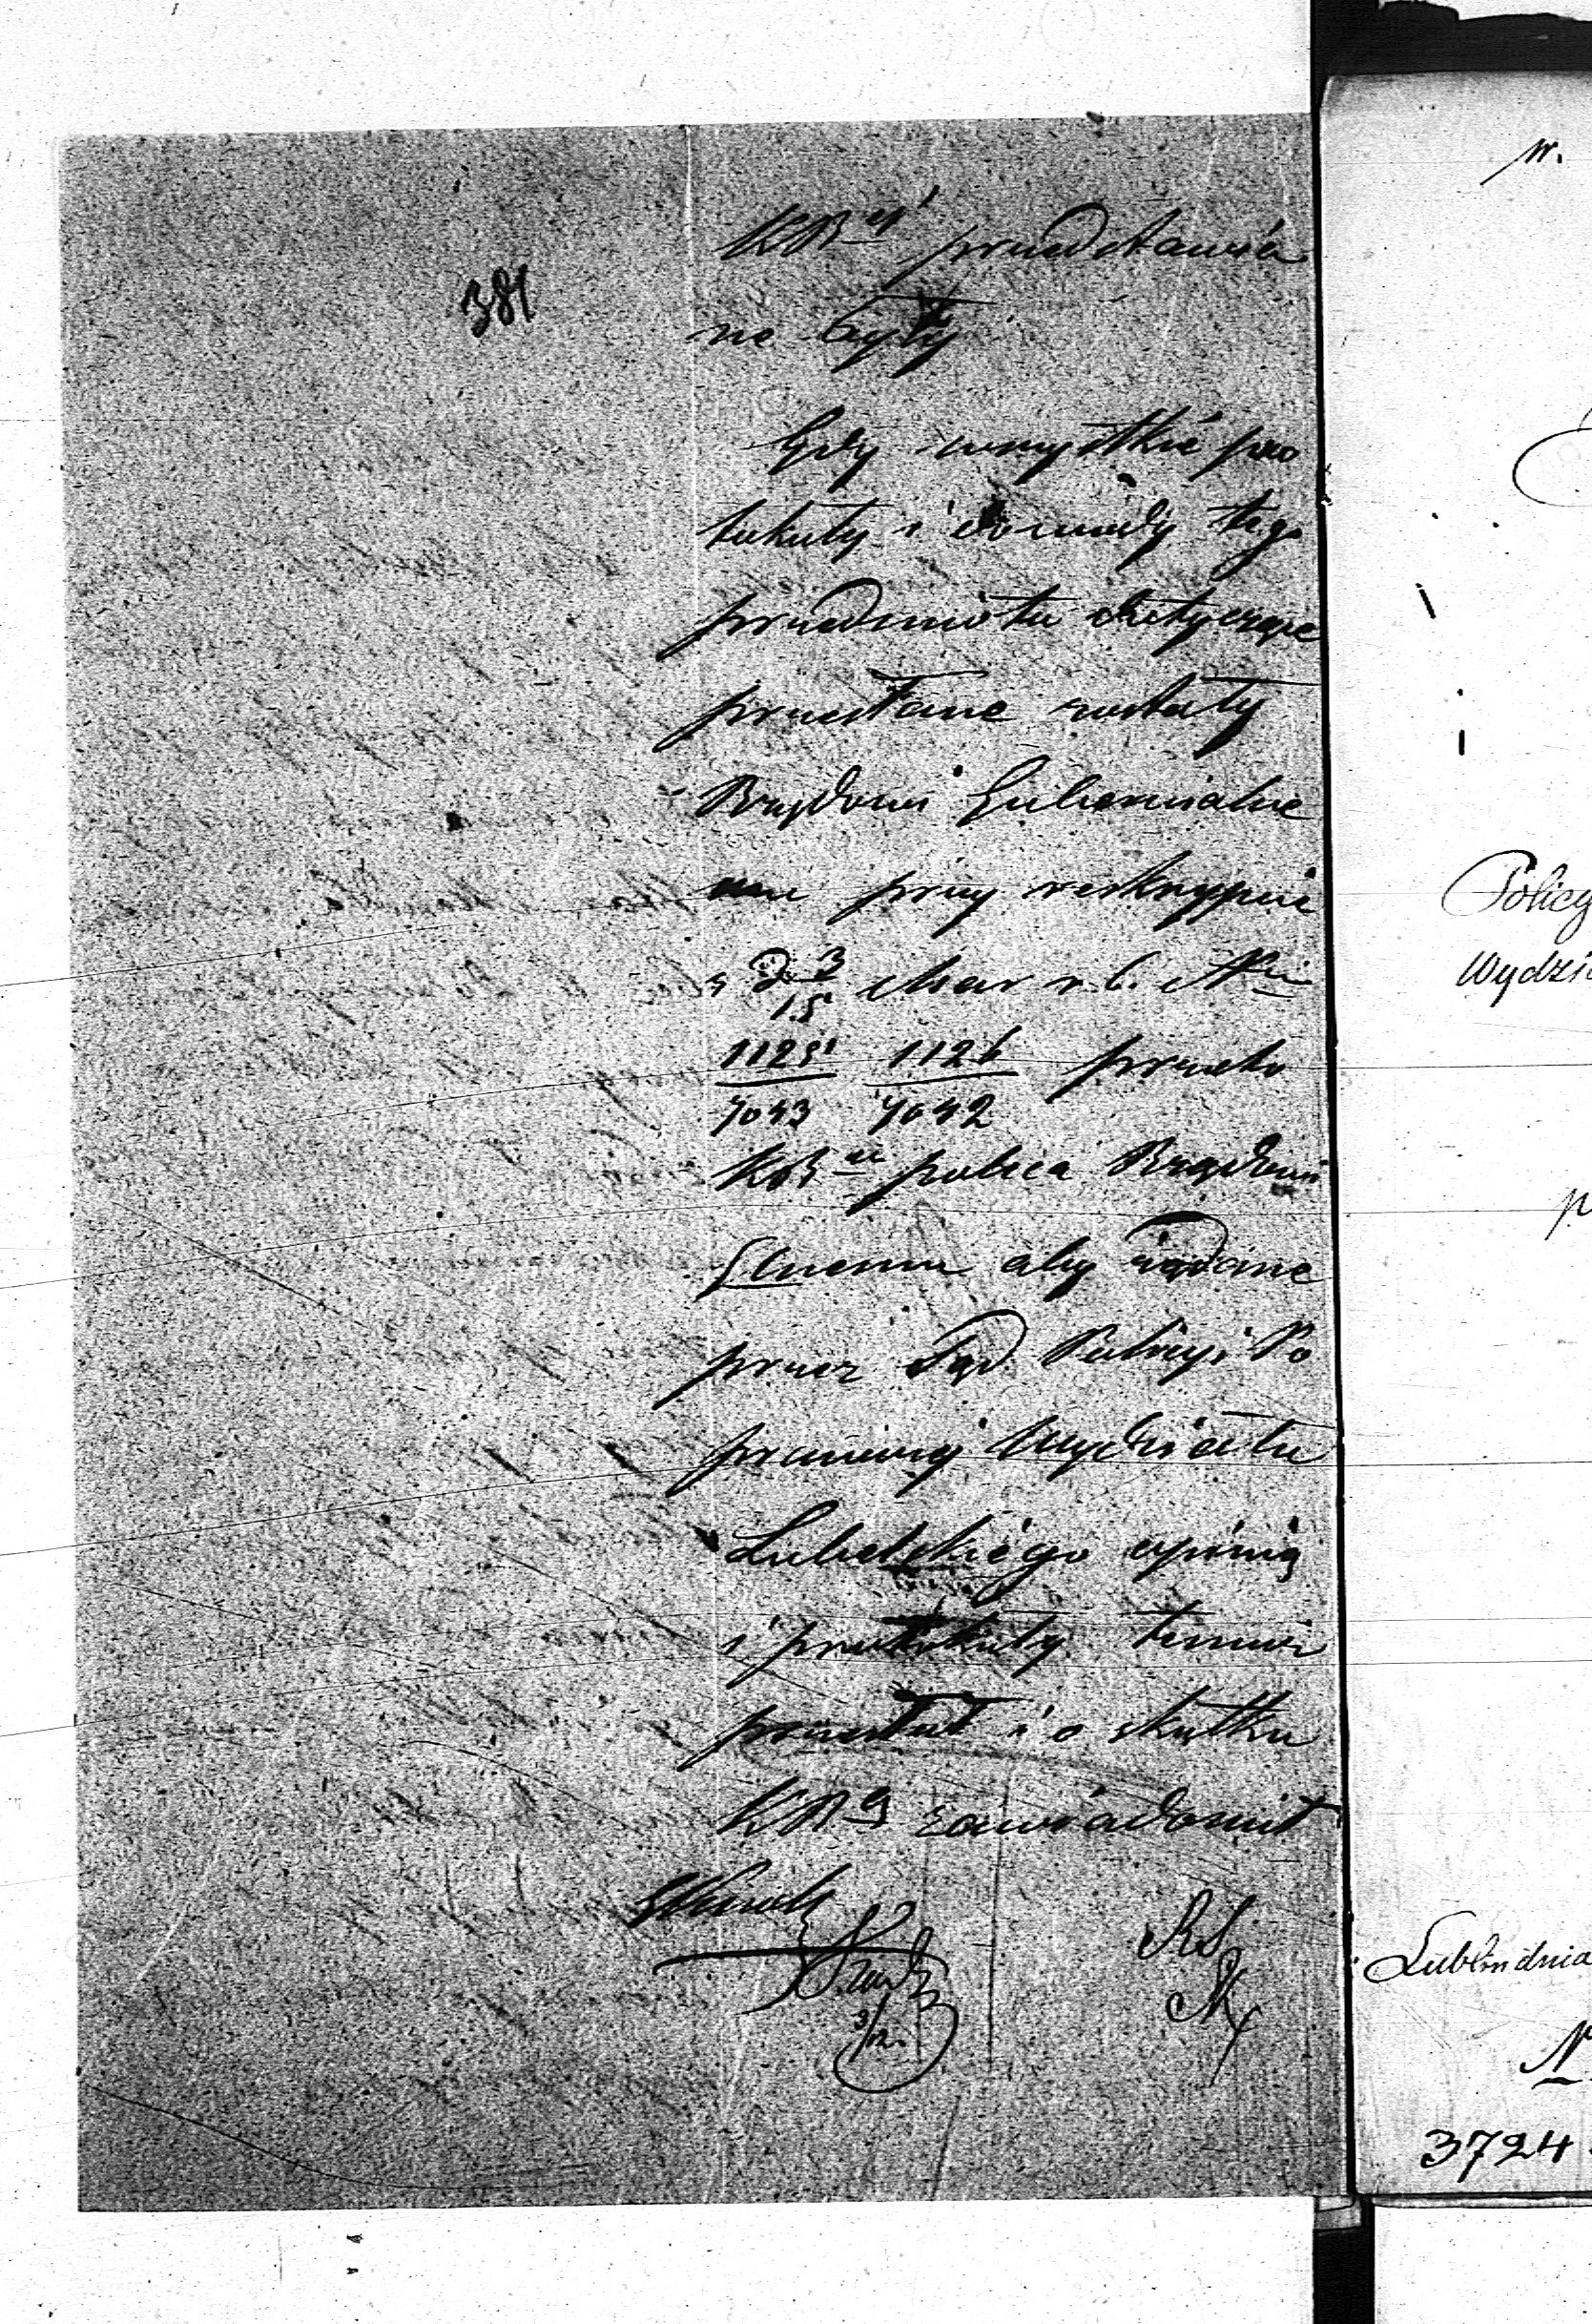 381
KR ej przedstawia
ne były
Gdy wszystkie pro
tokuły i dowody tego
przedmiotu dotyczące
przesłane zostały
Rządowi Gubernialne
mu przy reskrypcie
z d. 3/15 Mar r. b. N
1125 1126 przeto
7043 7042
KR poleca Rządowi
Glnemu aby żądane
przez Sąd Policyi Po
prawczej Wydziału
Lubelskiego opinią
i protokuły temuż
przesłał i o skutku
KR ą zawiadomił
3/12
RS
w.
Policy
Wydzi
p
Lublin dnia
N
3724